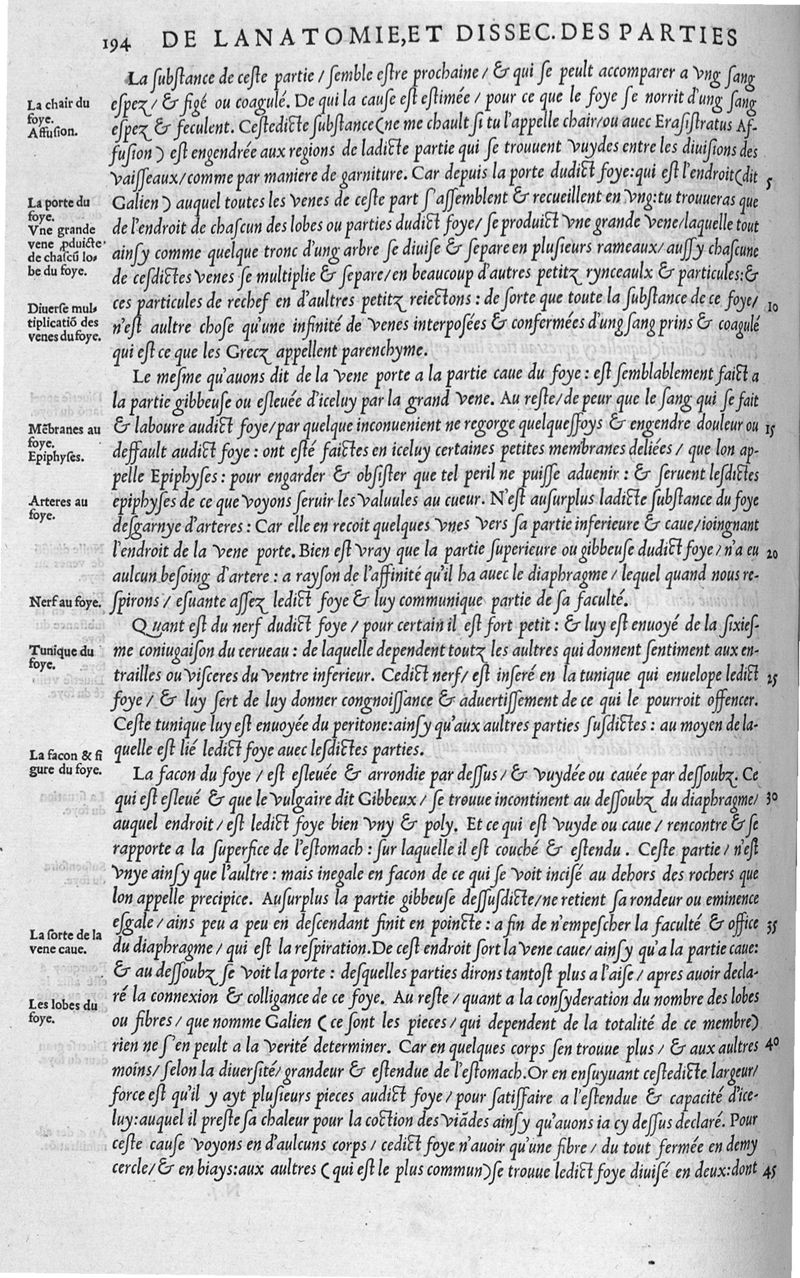 194 DE LANATOMIE, ET DISSEC. DES PARTIES
La substance de ceste partie / semble estre prochaine / & qui se peult accomparer a vng sang
La chair du
foye.
Affusion.
espez / & figé ou coagulé. De qui la cause est estimée / pour ce que le foye se norrit d'ung sang
espez & feculent. Cestedicte substance (ne me chault si tu l'appelle chair / ou avec Erasistratus Af-
fusion) est engendrée aux regions de ladicte partie qui se trouuent vuydes entre les diuisions des
vaisseaux / comme par maniere de garniture. Car depuis la porte dudict foye: qui est l'endroit (dit 5
La porte du
foye.
Vne grande
vene ꝓduicte
de chascũ lo-
be du foye.
Galien) auquel toutes les venes de ceste part s'assemblent & recueillent en vng: tu trouueras que
de l'endroit de chascun des lobes ou parties dudict foye / se produict vne grande vene / laquelle tout
ainsy comme quelque tronc d'ung arbre se diuise & separe en plusieurs rameaux / aussy chascune
de cesdictes venes se multiplie & separe / en beaucoup d'autres petitz rynceaulx & particules: &
Diuerse mul-
tiplicatiõ des
venes du foye.
ces particules de rechef en d'aultres petitz reiectons: de sorte que toute la substance de ce foye / 10
n'est aultre chose qu'une infinité de venes interposées & confermées d'ung sang prins & coagulé
qui est ce que les Grecz appellent parenchyme.
Le mesme qu'auons dit de la vene porte a la partie caue du foye: est semblablement faict a
la partie gibbeuse ou esleuée d'iceluy par la grand vene. Au reste / de peur que le sang qui se fait
Mẽbranes au
foye.
Epiphyses.
& laboure audict foye / par quelque inconuenient ne regorge quelquessoys & engendre douleur ou 15
deffault audict foye: ont esté faictes en iceluy certaines petites membranes deliées / que lon ap-
pelle Epiphyses: pour engarder & obsister que tel peril ne puisse aduenir: & seruent lesdictes
Arteres au
foye.
epiphyses de ce que voyons seruir les valuules au cueur. N'est ausurplus ladicte substance du foye
desgarnye d'arteres: Car elle en recoit quelques vnes vers sa partie inferieure & caue / ioingnant
l'endroit de la vene porte. Bien est vray que la partie superieure ou gibbeuse dudict foye / n'a eu 20
aulcun besoing d'artere: a rayson de l'affinité qu'il ha avec le diaphragme / lequel quand nous re-
Nerf au foye.
spirons / esuante assez ledict foye & luy communique partie de sa faculté.
Quant est du nerf dudict foye / pour certain il est fort petit: & luy est enuoyé de la sixies-
Tunique du
foye.
me coniugaison du cerueau: de laquelle dependent toutz les aultres qui donnent sentiment aux en-
trailles ou visceres du ventre inferieur. Cedict nerf / est inseré en la tunique qui enuelope ledict 25
foye / & luy sert de luy donner congnoissance & aduertissement de ce qui le pourroit offencer.
Ceste tunique luy est enuoyée du peritone: ainsy qu'aux aultres parties susdictes: au moyen de la-
quelle est lié ledict foye auec lesdictes parties.
La facon & fi
gure du foye.
La facon du foye / est esleuée & arrondie par dessus / & vuydée ou cauée par dessoubz. Ce
qui est esleué & que le vulgaire dit Gibbeux / se trouue incontinent au dessoubz du diaphragme / 30
auquel endroit / est ledict foye bien vny & poly. Et ce qui est vuyde ou caue / rencontre & se
rapporte a la superfice de l'estomach: sur laquelle il est couché & estendu. Ceste partie / n'est
vnye ainsy que l'aultre: mais inegale en facon de ce qui se voit incisé au dehors des rochers que
lon appelle precipice. Ausurplus la partie gibbeuse dessusdicte / ne retient sa rondeur ou eminence
esgale / ains peu a peu en descendant finit en poincte: a fin de n'empescher la faculté & office 35
La sorte de la
vene caue.
du diaphragme / qui est la respiration. De cest endroit sort la vene caue / ainsy qu'a la partie caue:
& au dessoubz se voit la porte: desquelles parties dirons tantost plus a l'aise / apres auoir decla-
ré la connexion & colligance de ce foye. Au reste / quant a la consyderation du nombre des lobes
Les lobes du
foye.
ou fibres / que nomme Galien (ce sont les pieces / qui dependent de la totalité de ce membre)
rien ne s'en peult a la verité determiner. Car en quelques corps sen trouue plus / & aux aultres 40
moins / selon la diuersité / grandeur & estendue de l'estomach. Or en ensuyuant cestedicte largeur /
force est qu'il y ayt plusieurs pieces audict foye / pour satisfaire a l'estendue & capacité d'ice-
luy: auquel il preste sa chaleur pour la coction des viãdes ainsy qu'auons ia cy dessus declaré. Pour
ceste cause voyons en d'aulcuns corps / cedict foye n'auoir qu'une fibre / du tout fermée en demy
cercle / & en biays: aux aultres (qui est le plus commun) se trouue ledict foye diuisé en deux: dont 45